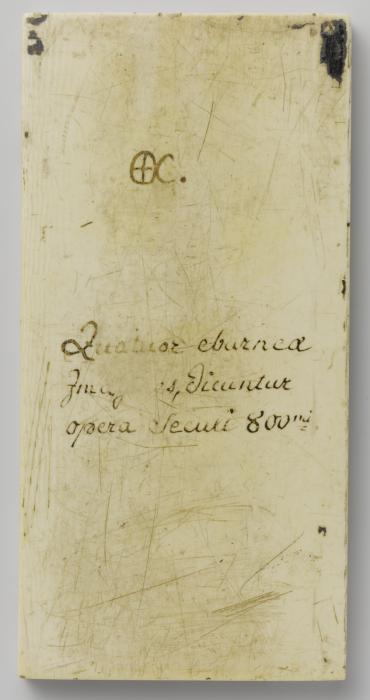 ⊕C.
Quatuor eburneæ
Imagines, dicuntur
opera Seculi 800mi